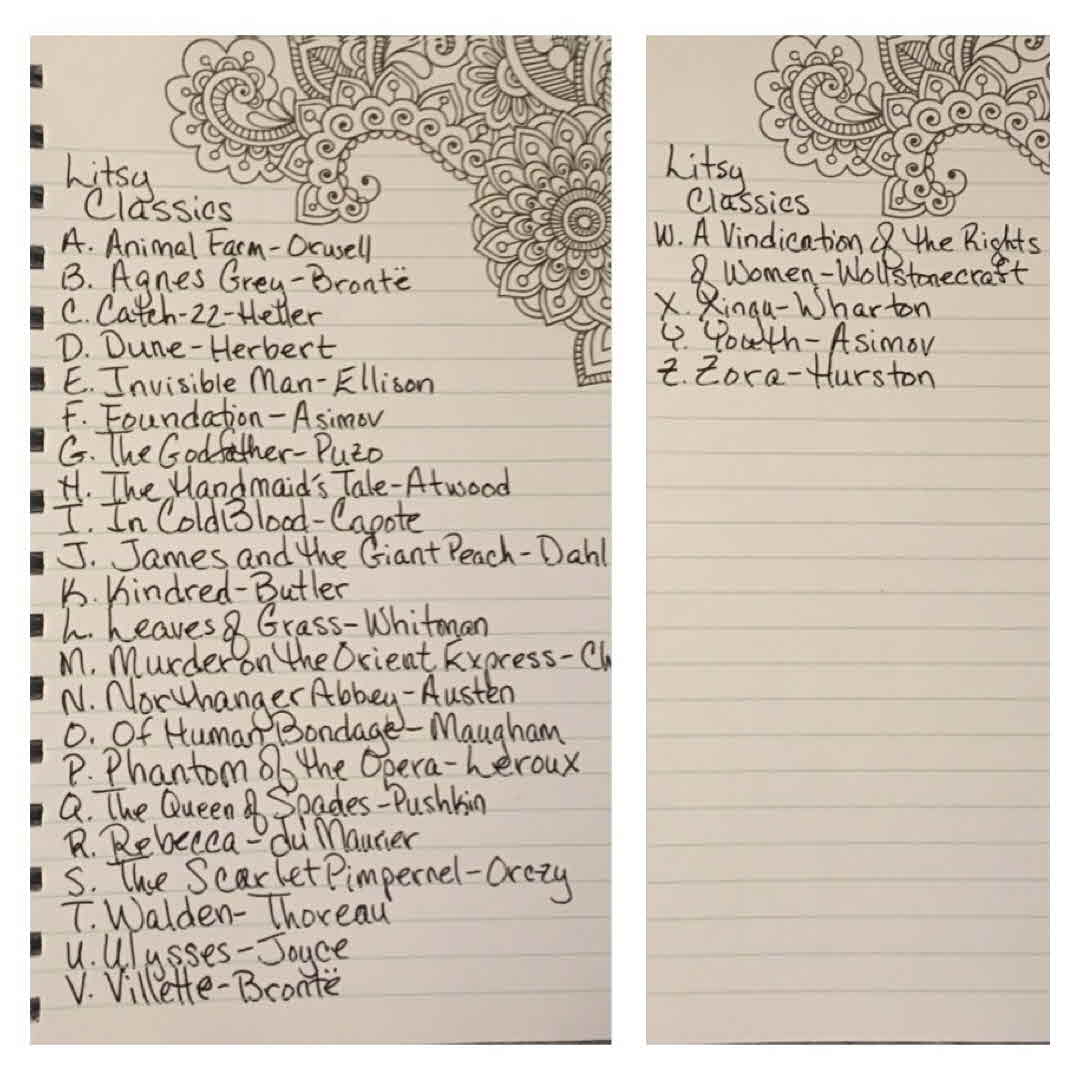 Litsy
Classics
A. Animal Farm-Orwell
B. Agnes Grey-Brontë
C. Catch-22-Heller
D. Dune-Herbert
E. Invisible Man-Ellison
F. Foundation-Asimov
G. The Godfather-Puzo
H. The Handmaid's Tale-Atwood
I. In Cold Blood-Capote
J. James and the Giant Peach-Dahl
K. Kindred-Butler
L. Leaves of Grass-Whitman
M. Murder on the Orient Express-Ch
N. Northanger Abbey-Austen
O. Of Human Bondage-Maugham
P. Phantom of the Opera-Leroux
Q. The Queen of Spades-Pushkin
R. Rebecca-du Maurier
S. The Scarlet Pimpernel-Orczy
T. Walden-Thoreau
U. Ulysses-Joyce
V. Villette-Brontë
Litsy
Classics
W. A Vindication of the Rights
of Women-Wollstonecraft
X. Xingu-Wharton
Y. Youth-Asimov
Z. Zora-Hurston